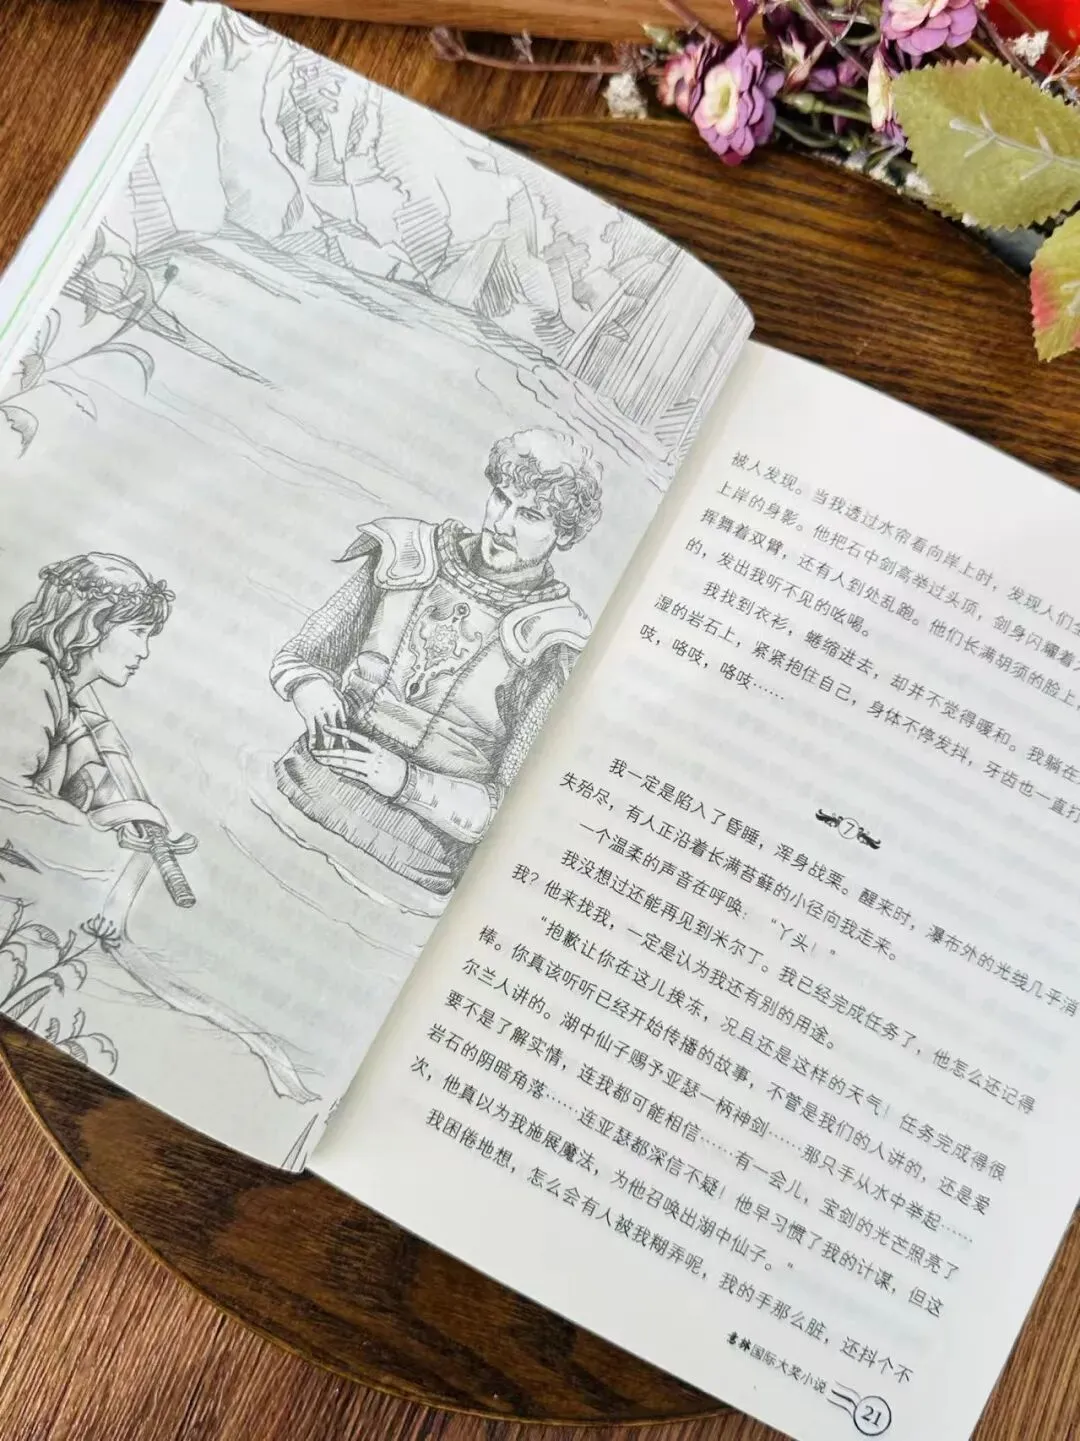 被人发现。当我透过水帘看向岸上时，发现人们
上岸的身影。他把石中剑高举过头顶，剑身闪耀着
挥舞着双臂，还有人到处乱跑。他们长满胡须的脸上
的，发出我听不见的吆喝。
我找到衣衫，蜷缩进去，却并不觉得暖和。我躺在
湿的岩石上，紧紧抱住自己，身体不停发抖，牙齿也一直打
吱，咯吱，咯吱……
7
我一定是陷入了昏睡，浑身战栗。醒来时，瀑布外的光线几乎消
失殆尽，有人正沿着长满苔藓的小径向我走来。
一个温柔的声音在呼唤：“丫头！”
我没想过还能再见到米尔丁。我已经完成任务了，他怎么还记得
我？他来找我，一定是认为我还有别的用途。
“抱歉让你在这儿挨冻，况且还是这样的天气！任务完成得很
棒。你真该听听已经开始传播的故事，不管是我们的人讲的，还是爱
尔兰人讲的。湖中仙子赐予亚瑟一柄神剑……那只手从水中举起……
要不是了解实情，连我都可能相信……有一会儿，宝剑的光芒照亮了
岩石的阴暗角落……连亚瑟都深信不疑！他早习惯了我的计谋，但这
次，他真以为我施展魔法，为他召唤出湖中仙子。”
我困倦地想，怎么会有人被我糊弄呢，我的手那么脏，还抖个不
意林国际大奖小说
21